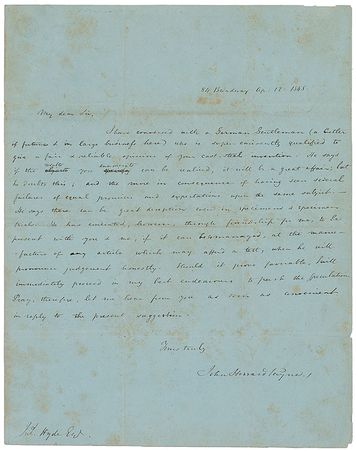 84 Broadway Apr. 12 1848
My dear Sir,
I have conversed with a German Gentleman (a Cutler
of fortune & in large business here) who is super-eminently qualified to
give a fair & reliable opinion of your cast-steel invention. He says
if the results you enumerate can be realized, it will be a great affair; but
he doubts this; and the more in consequence of having seen several
failures of equal promises and expectations upon the same subject.—
He says there can be great deception used in specimens & experiments.
He has consented, however, through friendship for me, to be
present with you & me, if it can be managed, at the manu-
facture of any article which may afford a test, when he will
pronounce judgement honestly. Should it prove favorable, I will
immediately proceed in my best endeavours to push the speculation
Pray, therefore, let me hear from you as soon as convenient
in reply to the present suggestion.
Yours truly
John Howard Payne
Hyde Esq.